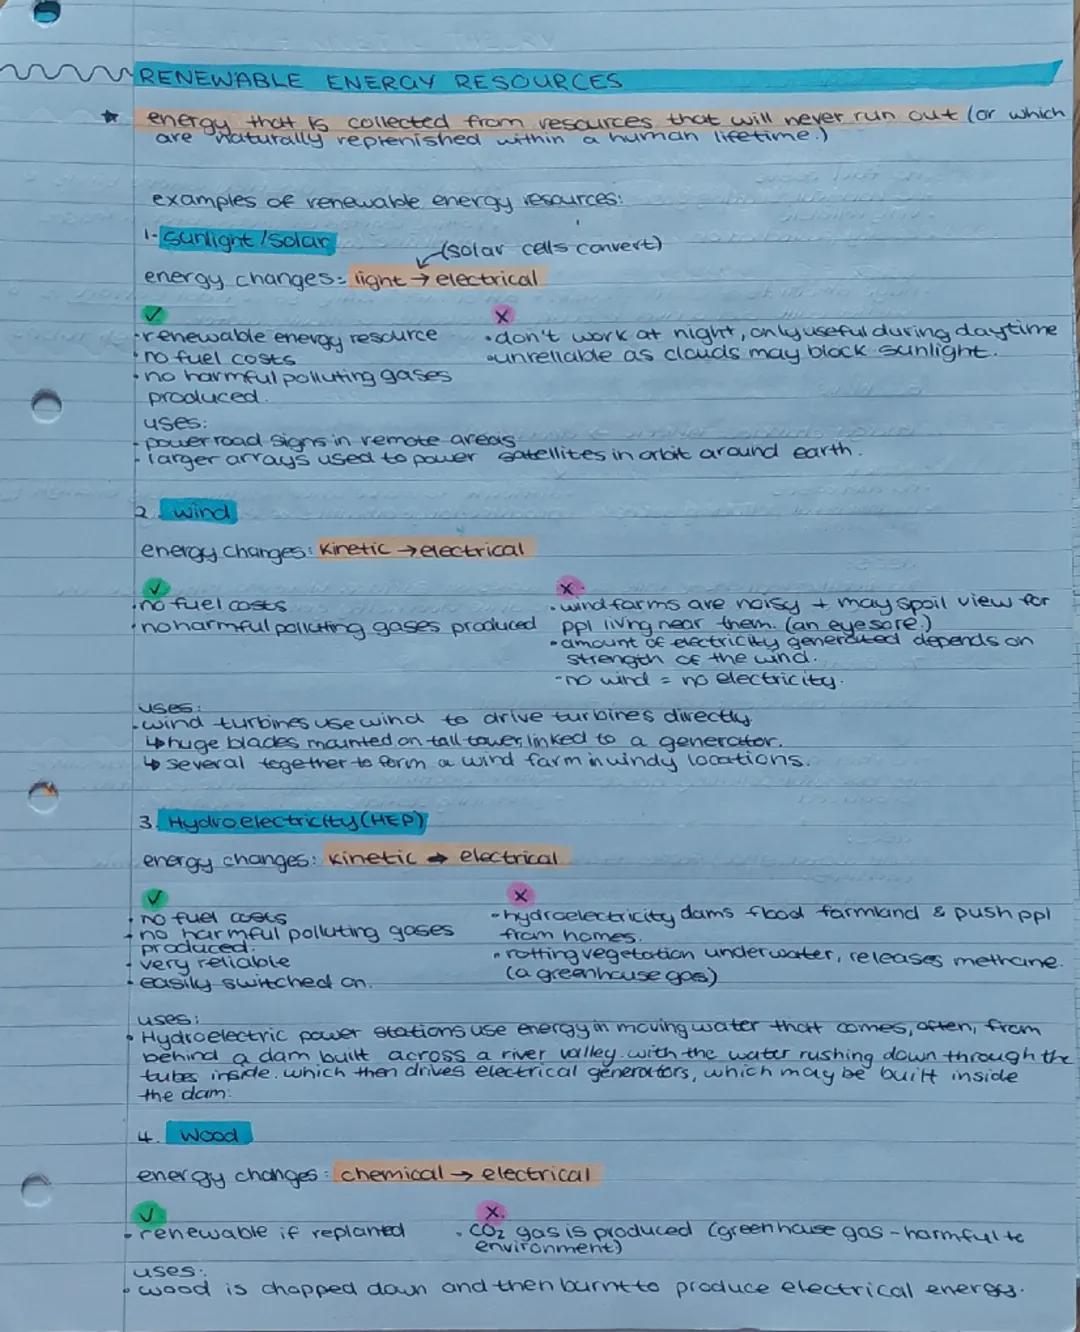 RENEWABLE ENERGY RESOURCES
energy that is collected from resources that will never run out (or which
are naturally replenished within a human lifetime.)
examples of renewable energy resources:
1- Sunlight/Solar
(solar cells convert)
energy changes: light → electrical
✓
·renewable energy resource
·no fuel costs
·no harmful polluting gases
produced.
X
·don't work at night, only useful during daytime
·unreliable as clouds may block sunlight.
uses:
·power road signs in remote areas
·larger arrays used to power satellites in orbit around earth.
2. wind
energy changes: kinetic → electrical
✓
·no fuel costs
·no harmful polluting gases produced
X
·windfarms are noisy + may spoil view for
ppl living near them. (an eyesore.)
·amount of electricity generated depends on
strength of the wind.
-no wind = no electricity.
uses:
·wind turbines use wind to drive turbines directly
↳huge blades mounted on tall tower, linked to a generator.
↳several together to form a wind farm in windy locations.
3. Hydroelectricity (HEP)
energy changes: kinetic → electrical
✓
·no fuel costs
·no harmful polluting gases
produced.
·very reliable
·easily switched on.
X
·hydroelectricity dams flood farmland & push ppl
from homes.
·rotting vegetation underwater, releases methane.
(a greenhouse gas)
uses:
·Hydroelectric power stations use energy in moving water that comes, often, from
behind a dam built across a river valley. with the water rushing down through the
tubes inside. which then drives electrical generators, which may be built inside
the dam.
4. Wood
energy changes: chemical → electrical
✓
·renewable if replanted
X
·CO₂ gas is produced (greenhouse gas - harmful to
environment)
uses:
·wood is chopped down and then burnt to produce electrical energy.